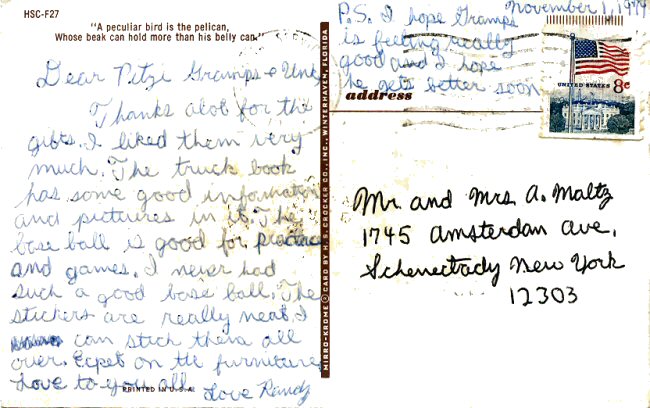 HSC-F27
"A peculiar bird is the pelican,
Whose beak can hold more than his belly can."
Dear Titzi Gramps & Unk,
Thanks alot for the
gifts. I liked them very
much. The truck book
has some good information
and pictures in it. The
base ball is good for practice
and games. I never had
such a good base ball. The
stickers are really neat I
can stick them all
over. Ecpet on the furniture
Love to you all
Love Randy
PRINTED IN U.S.A.
MIRRO-KROME® CARD BY H. S. CROCKER CO., INC., WINTERHAVEN, FLORIDA
November 1, 1974
P.S. I hope Gramps
is feeling really
good and I hope
he gets better soon
address
UNITED STATES 8c
Mr. and Mrs. A. Maltz
1745 Amsterdan Ave.
Schenectady New York
12303